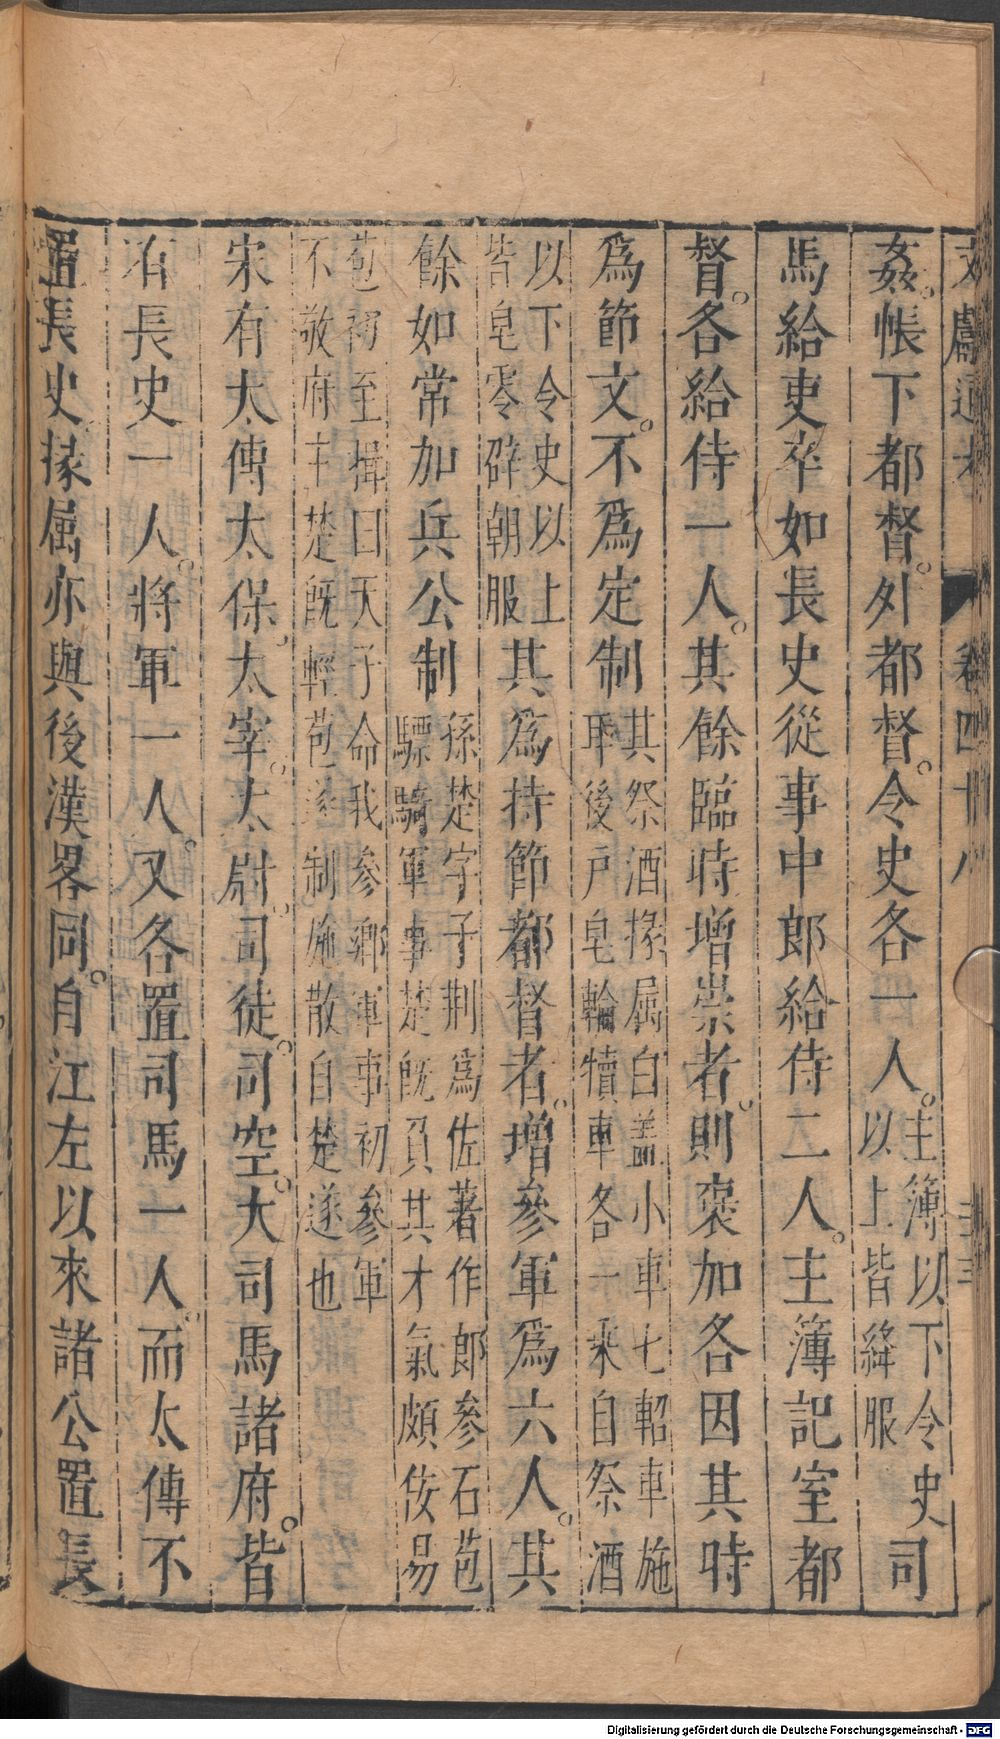 文獻通考 卷四十八 三三
姦帳下都督外都督令史各一人主簿以下令史司
以上皆絳服
馬給吏卒如長史從事中郎給侍二人主簿記室都
督各給侍一人其餘臨時增崇者則褒加各因其時
爲節文不爲定制其祭酒掾屬白蓋小車七軺車施
耳後戸皂輪犢車各一乘自祭酒
以下令史以上
皆皂零辟朝服其爲持節都督者增參軍爲六人其
餘如常加兵公制孫楚字子荆爲佐著作郎參石苞
驃騎軍事楚旣負其才氣頗侮易
苞初至揖曰天子命我參卿軍事初參軍
不敬府主楚旣輕苞遂制施敬自楚遂也
宋有太傅太保太宰太尉司徒司空大司馬諸府皆
有長史一人將軍一人又各置司馬一人而太傅不
置長史掾屬亦與後漢畧同自江左以來諸公置長
Digitalisierung gefördert durch die Deutsche Forschungsgemeinschaft - DFG